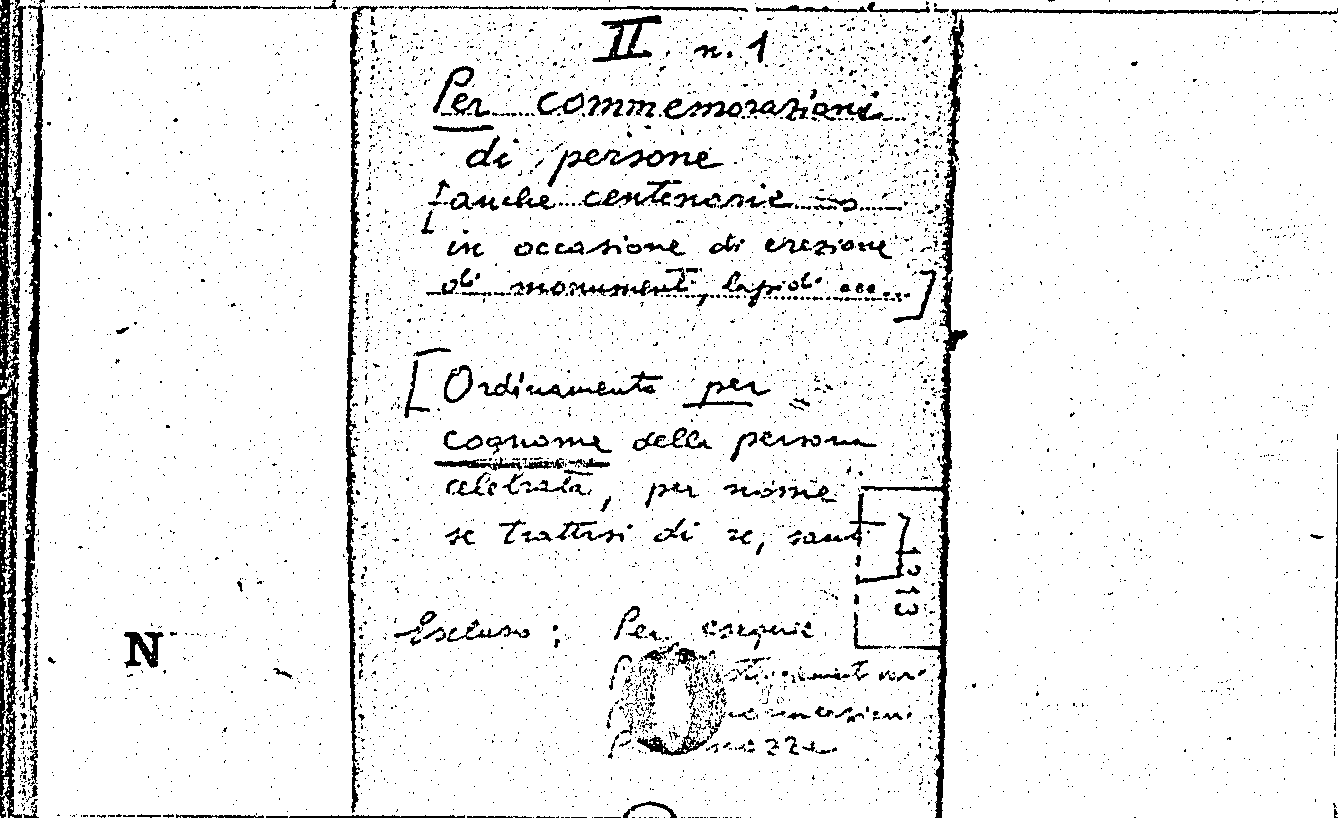 II n. 1
Per commemorazioni
di persone
[anche centenarie o
in occasione di erezione
di monumenti, lapidi ecc...]
[Ordinamento per
cognome della persona
celebrata, per nome
se trattisi di re, santi]
1213
Escluso: Per esequie
Per
Per nozze
N